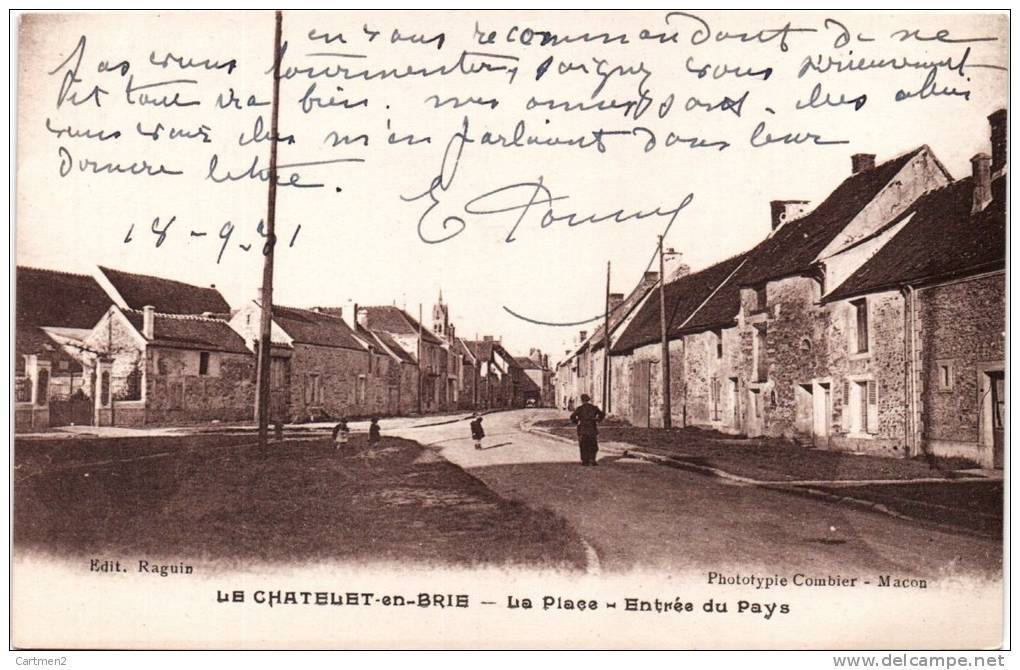 en vous recommandant de ne
pas vous tourmenter, soignez vous sérieusement
et tout ira bien. mes amis sont
vous voir
dernière lettre.
18-9-31
Edit. Raguin
Phototypie Combier - Macon
LE CHATELET-en-BRIE — La Place - Entrée du Pays
Cartmen2
www.delcampe.net